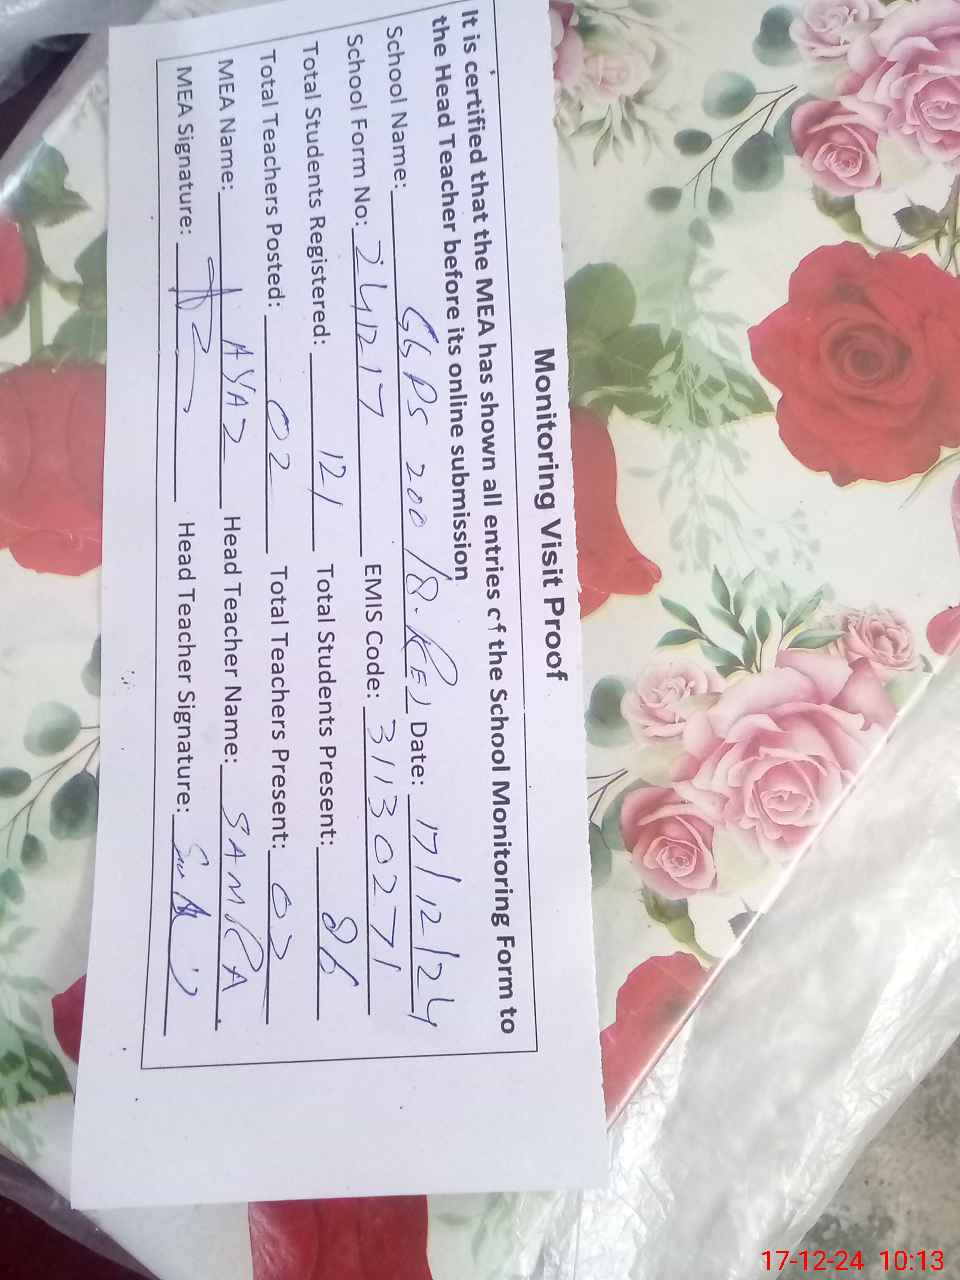 Monitoring Visit Proof
It is certified that the MEA has shown all entries of the School Monitoring Form to
the Head Teacher before its online submission
School Name: GGPS 200/8.R EJ Date: 17/12/24
School Form No: 241217 EMIS Code: 31130271
Total Students Registered: 121 Total Students Present: 86
Total Teachers Posted: 02 Total Teachers Present: 02
MEA Name: AYAZ Head Teacher Name: SAMRA
MEA Signature: Head Teacher Signature:
17-12-24 10:13